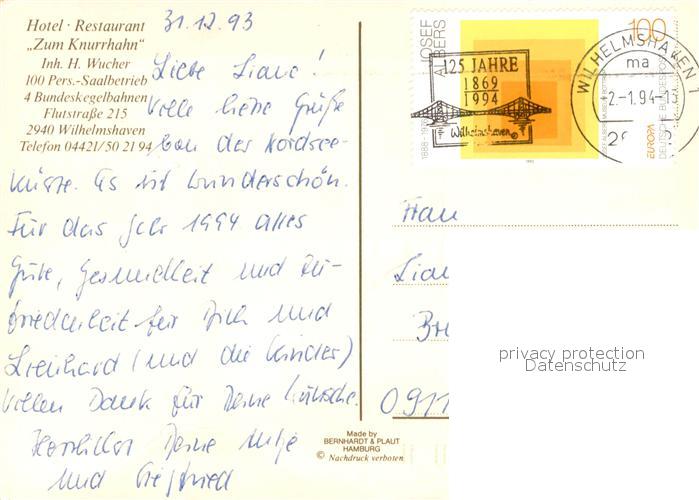 Hotel · Restaurant
„Zum Knurrhahn“
Inh. H. Wucher
100 Pers.-Saalbetrieb
4 Bundeskegelbahnen
Flutstraße 215
2940 Wilhelmshaven
Telefon 04421/50 21 94
31.12.93
Liebe Liane!
Viele liebe Grüße
von der Nordsee-
küste. Es ist wunderschön.
Für das Jahr 1994 alles
Gute, Gesundheit und Zu-
friedenheit für Dich und
Lienhard (und die Kinder)
Vielen Dank für Deine Wünsche.
Herzlichst Deine Antje
und Siegfried
JOSEF ALBERS
1888-1976
100
EUROPA
DEUTSCHE BUNDESPOST
1993
125 JAHRE
1869
1994
Wilhelmshaven
WILHELMSHAVEN 1
ma
2.-1.94-
Frau
Lian
Br
0911
privacy protection
Datenschutz
Made by
BERNHARDT & PLAUT
HAMBURG
© Nachdruck verboten